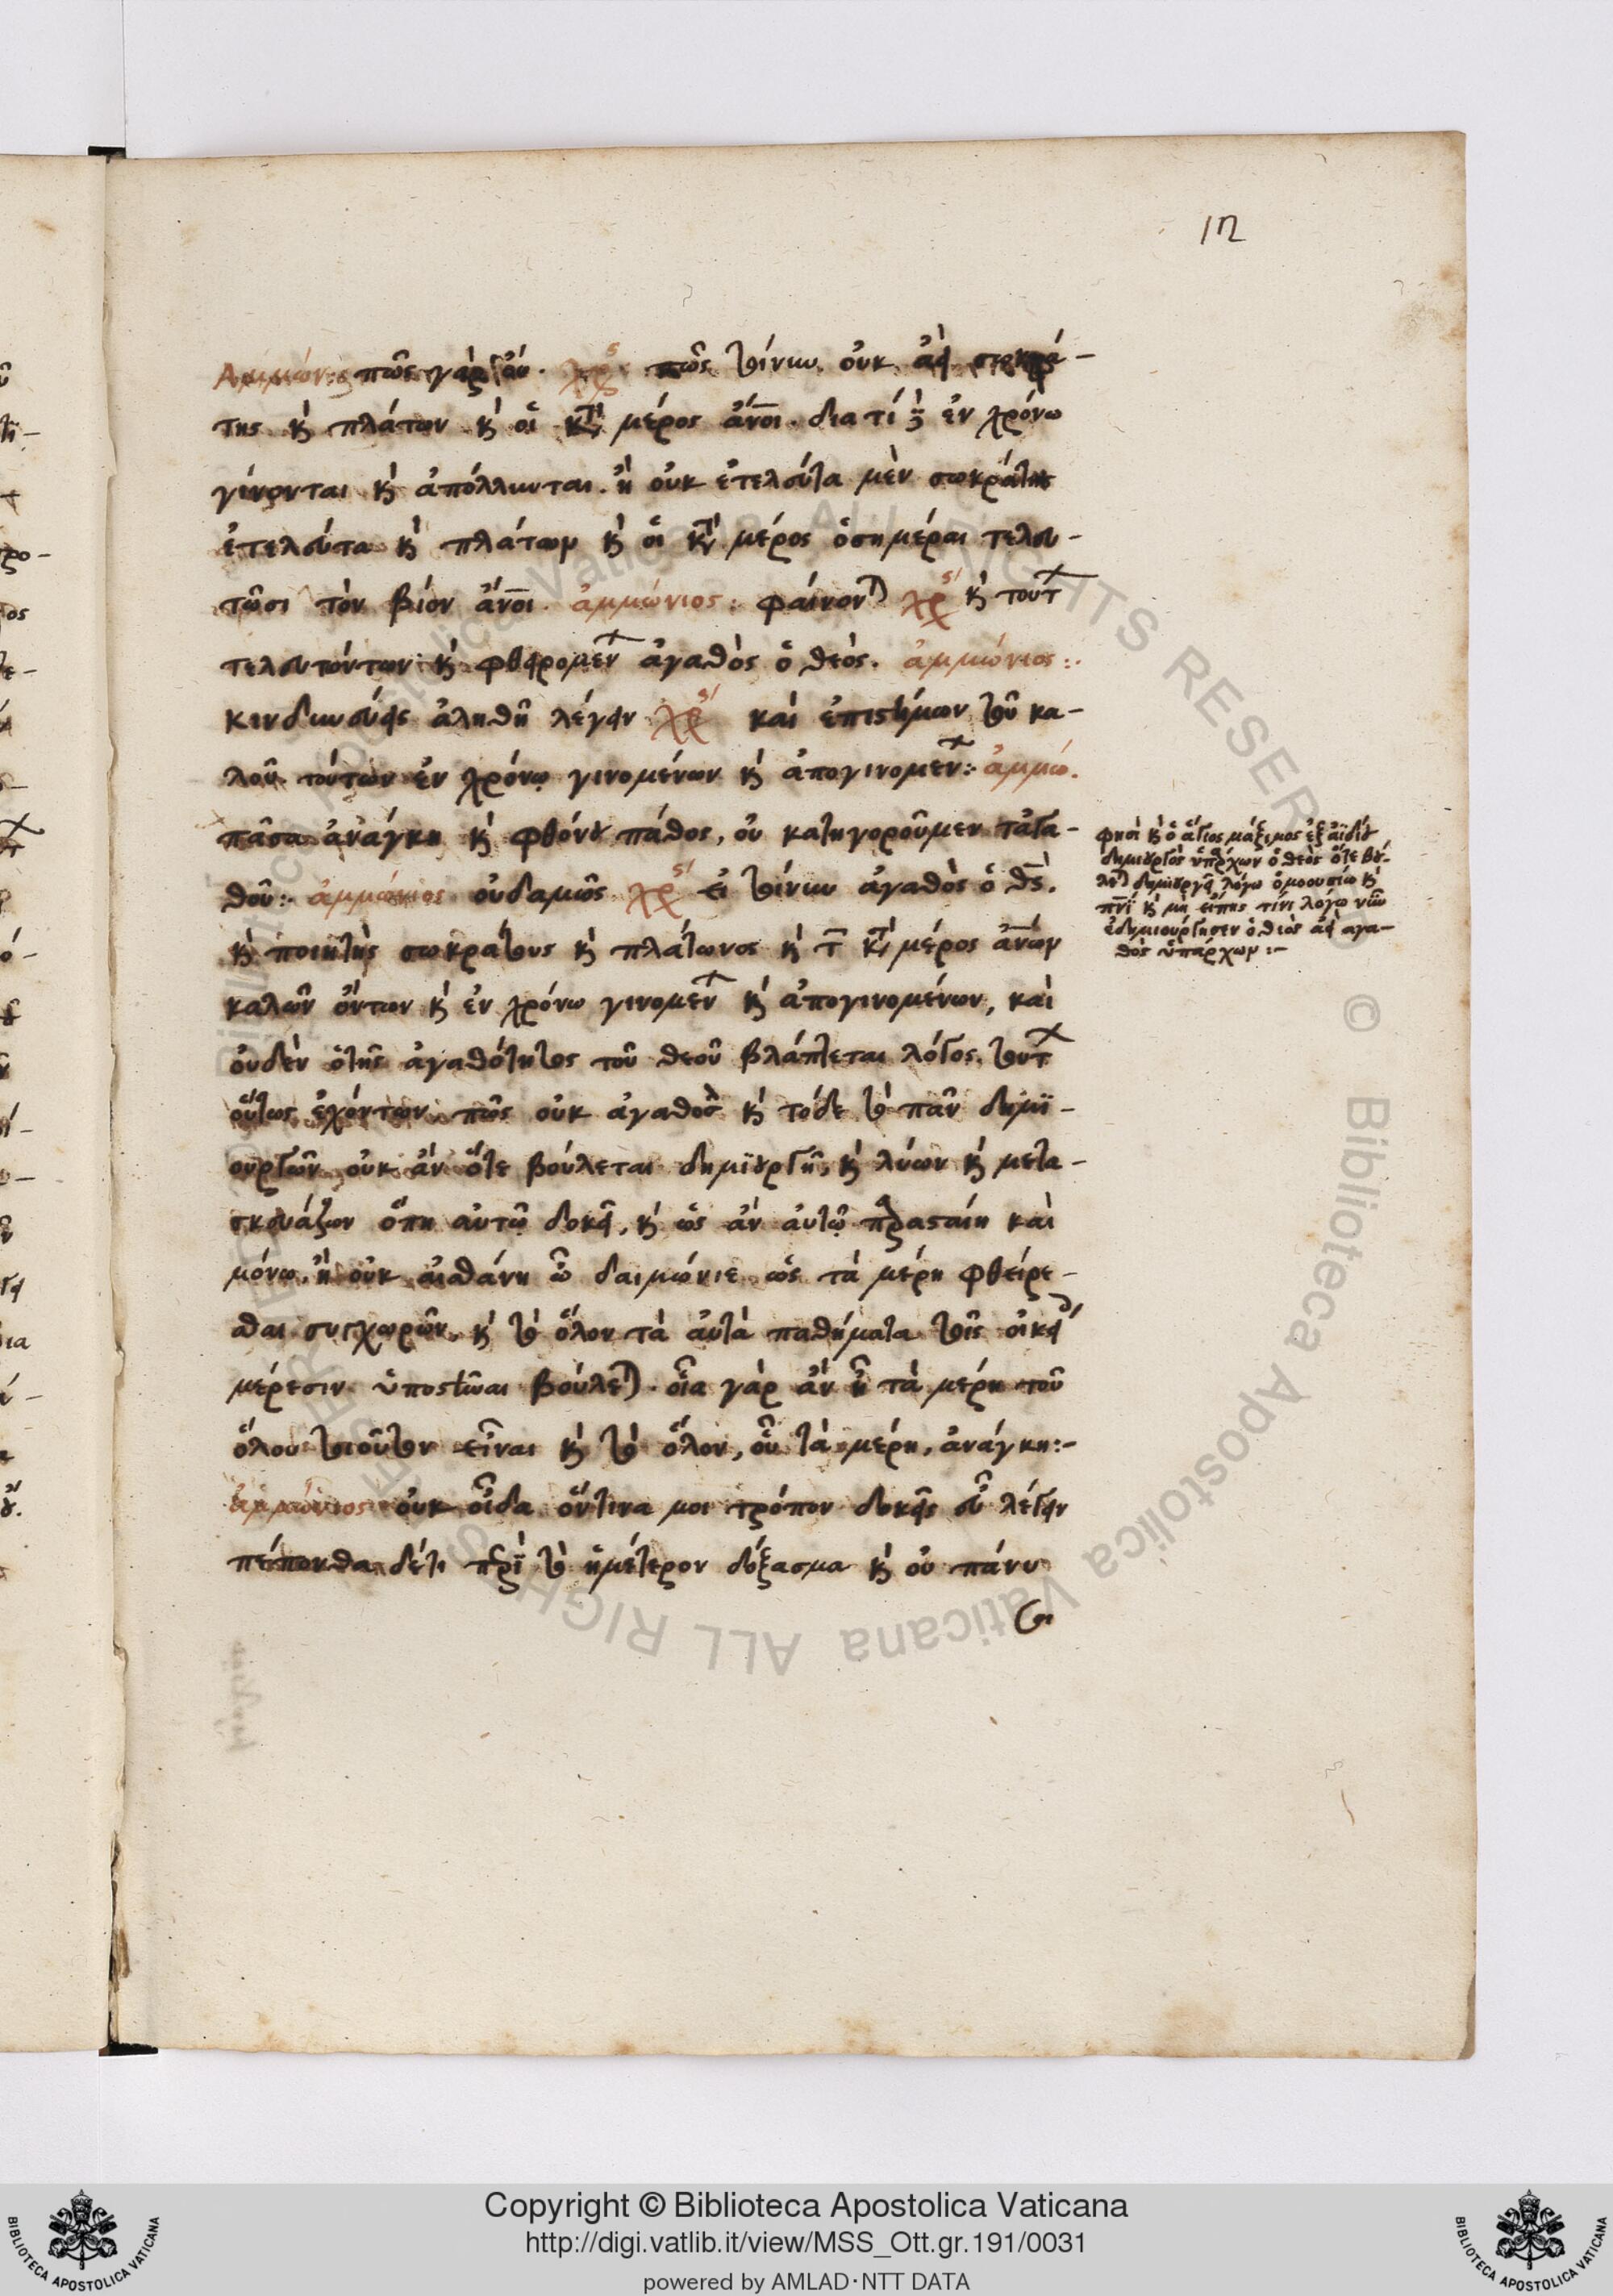 12
Ἀμμώνι: πῶς γὰρ οὔ. χρ πῶς τοίνυν οὐκ ἀεὶ σωκρά-
της κὶ πλάτων κὶ οἱ κτ μέρος ἄνοι. διατί ἐν χρόνω
γίνονται κὶ ἀπόλλυνται. ἢ οὐκ ἐτελεύτα μὲν σωκράτης
ἐτελεύτα κὶ πλάτων κὶ οἱ κτ μέρος ὁσημέραι τελευ-
τῶσι τὸν βίον ἄνοι. ἀμμώνιος: φαίνον χρ κὶ τουτ
τελευτόντων κὶ φθειρομεν ἀγαθὸς ὁ θεός. ἀμμώνιος:
κινδυνεύεις ἀληθῆ λέγειν χρ καὶ ἐπιστήμων τοῦ κα-
λοῦ τούτων ἐν χρόνω γινομένων κὶ ἀπογινομεν: ἀμμώ.
πᾶσα ἀνάγκη κὶ φθόνου πάθος, οὐ κατηγοροῦμεν τἀγα-
θοῦ: ἀμμώνιος οὐδαμῶς χρ εἰ τοίνυν ἀγαθὸς ὁ θς.
κὶ ποιητὴς σωκράτους κὶ πλάτωνος κὶ τ κτ μέρος ἄνων
καλῶν ὄντων κὶ ἐν χρόνω γινομεν κὶ ἀπογινομένων, καὶ
οὐδὲν ὁ τῆς ἀγαθότητος τοῦ θεοῦ βλάπτεται λόγος. τουτ
οὕτως ἐχόντων πῶς οὐκ ἀγαθος κὶ τόδε τὸ πᾶν δημϊ-
ουργῶν οὐκ ἂν ὅτε βούλεται δημϊουργῆ, κὶ λύων κὶ μετα-
σκευάζων ὅπη αὐτῷ δοκεῖ, κὶ ὡς ἂν αὐτῷ πρασταίη καὶ
μόνω. ἢ οὐκ αἰσθάνη ὦ δαιμόνιε ὡς τὰ μέρη φθείρε-
σθαι συγχωρῶν, κὶ τὸ ὅλον τὰ αὐτὰ παθήματα τοῖς οἰκεί
μέρεσιν ὑποστῶαι βούλε. οἷα γὰρ ἂν ᾖ τὰ μέρη τοῦ
ὅλου τοιοῦτον εἶναι κὶ τὸ ὅλον, οὗ τὰ μέρη, ἀνάγκη:-
ἀμμώνιος οὐκ οἶδα ὅντινα μοι τρόπον δοκεῖς εὖ λέγειν
πέπονθα δέτι πρὶ τὸ ἡμέτερον δόξασμα κὶ οὐ πάνυ
φησὶ κὶ ὁ ἅγιος μάξιμος ἐξ ἀϊδίου
δημιουργὸς ὑπάρχων ὁ θεὸς ὅτε βού-
λε δημιουργεῖ λόγω ὁμοουσίω κὶ
πνϊ κὶ μὴ εἴπης τίνι λόγω νῦν
ἐδημιούργησεν ὁ θεὸς ἀεὶ ἀγα-
θὸς ὑπάρχων:-
Copyright © Biblioteca Apostolica Vaticana
http://digi.vatlib.it/view/MSS_Ott.gr.191/0031
powered by AMLAD·NTT DATA